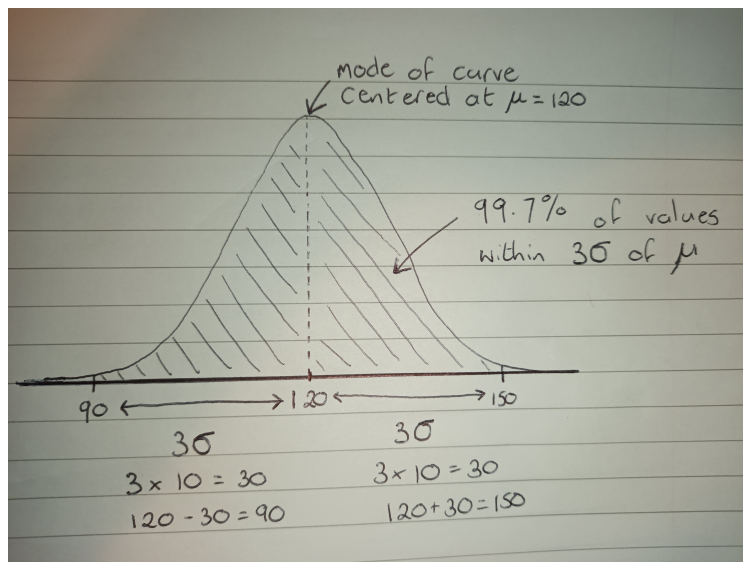 mode of curve
Centered at μ = 120
99.7% of values
within 3σ of μ
90
120
150
3σ
3σ
3 × 10 = 30
3 × 10 = 30
120 - 30 = 90
120 + 30 = 150